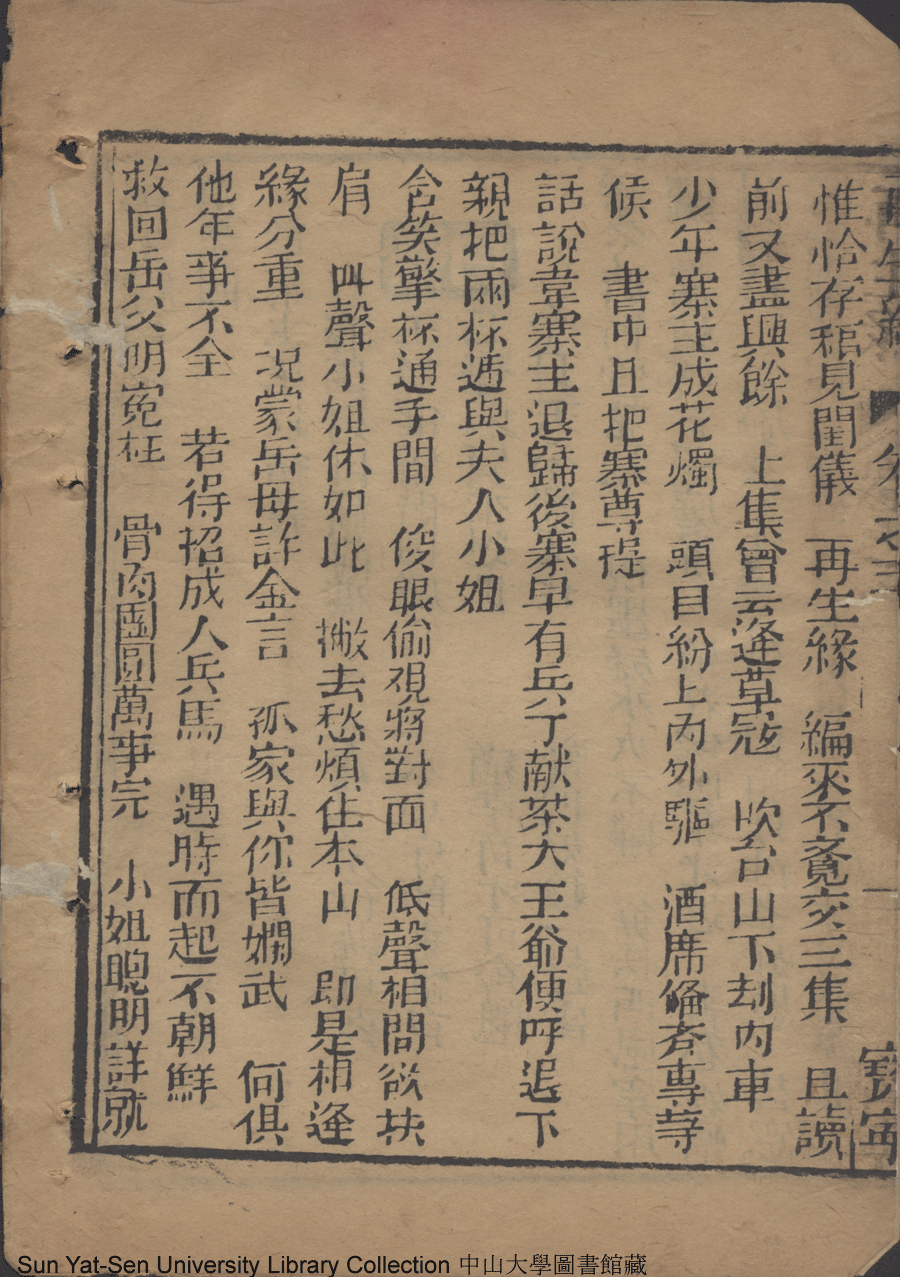 再生緣 卷之三 寶寧
惟恰存稿見閨儀 再生緣 編來不覔交三集 且讀
前文盡興餘 上集曾云逢草寇 吹台山下刦內車
少年寨主成花燭 頭目紛上內外驅 酒席俻齐專等
候 書中且把寨尊提
話說韋寨主退歸後寨早有兵丁献茶大王爺便呼退下
親把兩杯遞與夫人小姐
含笑擎杯通手間 俊眼偷覌將對面 低聲相問欲扶
肩 叫聲小姐休如此 撇去愁煩住本山 即是相逢
緣分重 况蒙岳母許金言 孤家與你皆嫻武 何俱
他年事不全 若得招成人兵馬 遇時而起不朝鮮
救回岳父明冤枉 骨肉團圓萬事完 小姐聰明詳就
Sun Yat-Sen University Library Collection 中山大學圖書館藏